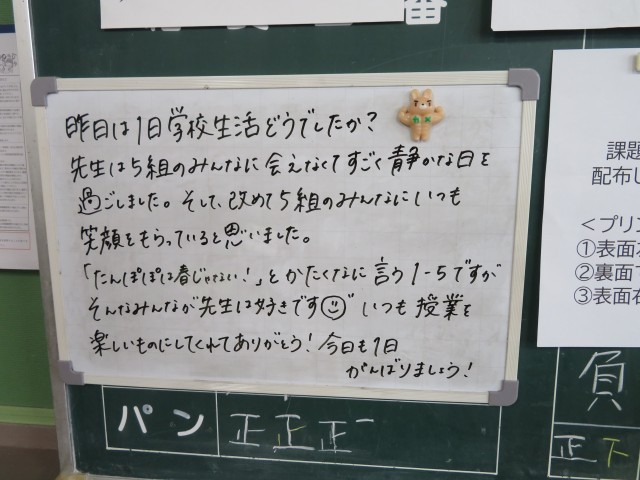 番
昨日は1日学校生活どうでしたか？
先生は5組のみんなに会えなくてすごく静かな日を
過ごしました。そして、改めて5組のみんなにいつも
笑顔をもらっていると思いました。
「たんぽぽは春じゃない！」とかたくなに言う1-5ですが
そんなみんなが先生は好きです
いつも授業を
楽しいものにしてくれてありがとう！今日も1日
がんばりましょう！
課題
配布し
＜プリン
①表面左
②裏面
③表面右
パン
正正正一
負
正下